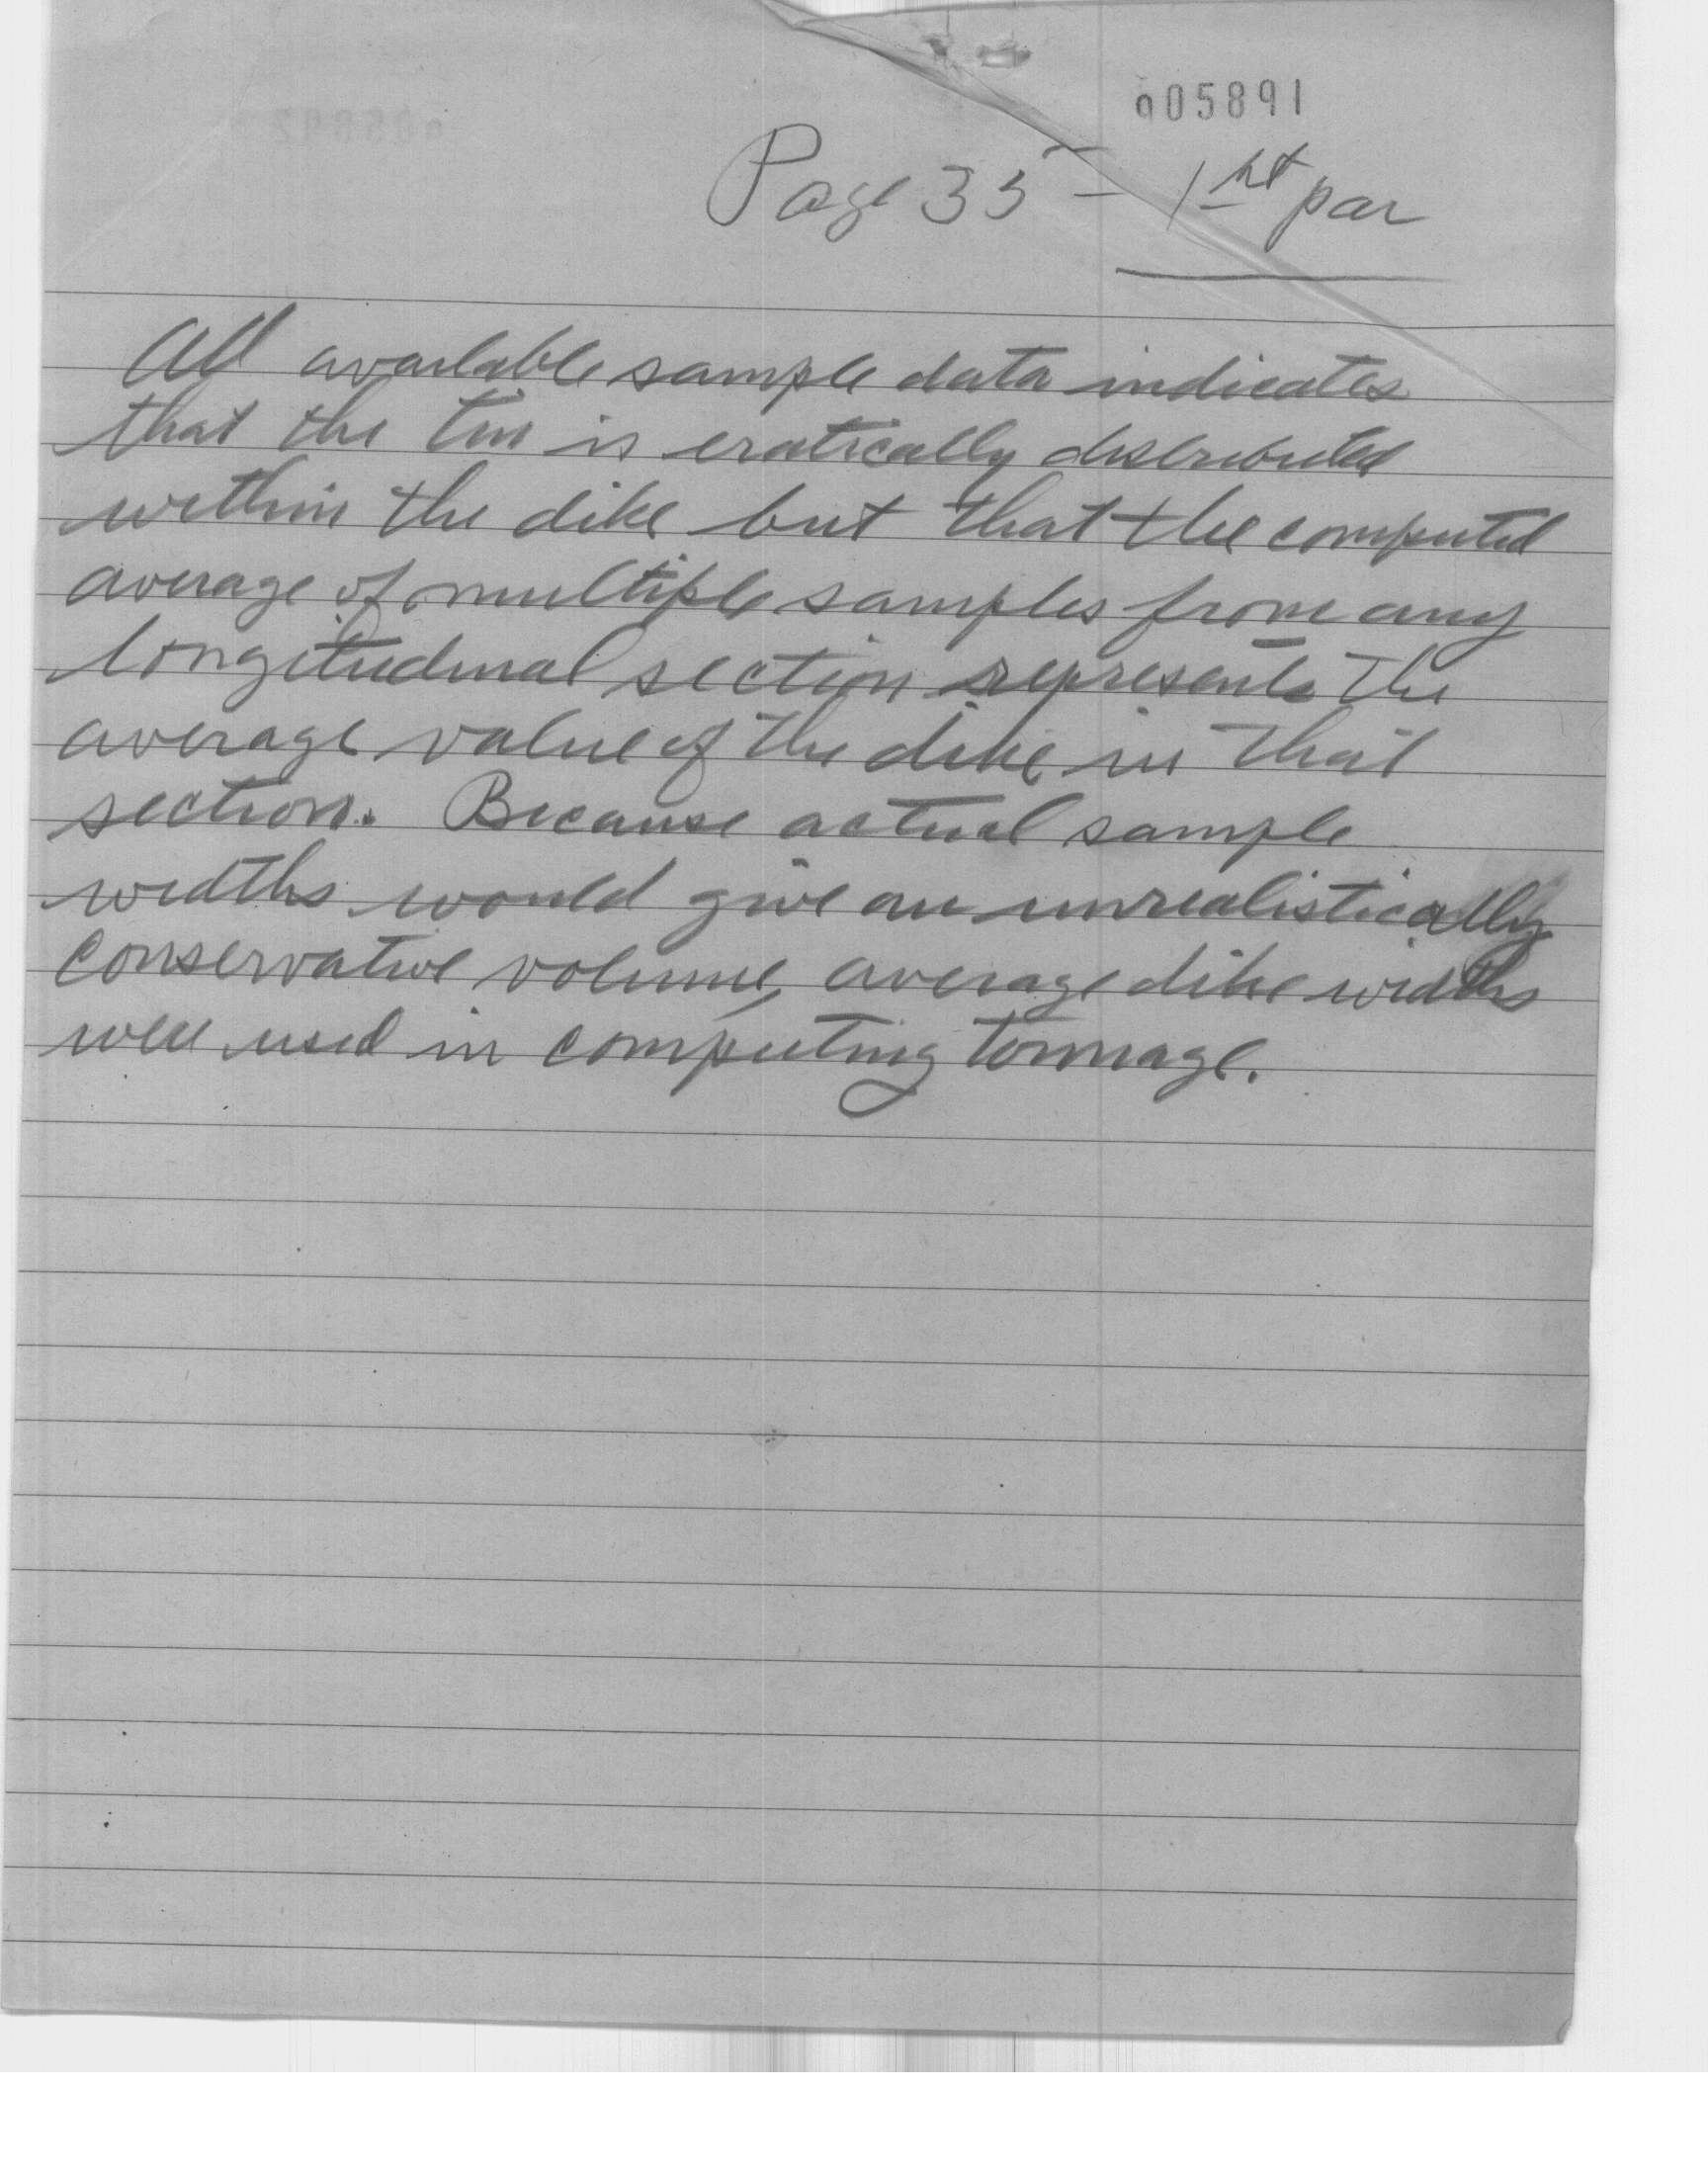 005891
Page 35 - 1st par
All available sample data indicates
that the tin is eratically distributed
within the dike but that the computed
average of multiple samples from any
longitudinal section represents the
average value of the dike in that
section. Because actual sample
widths would give an unrealistically
conservative volume, average dike widths
were used in computing tonnage.